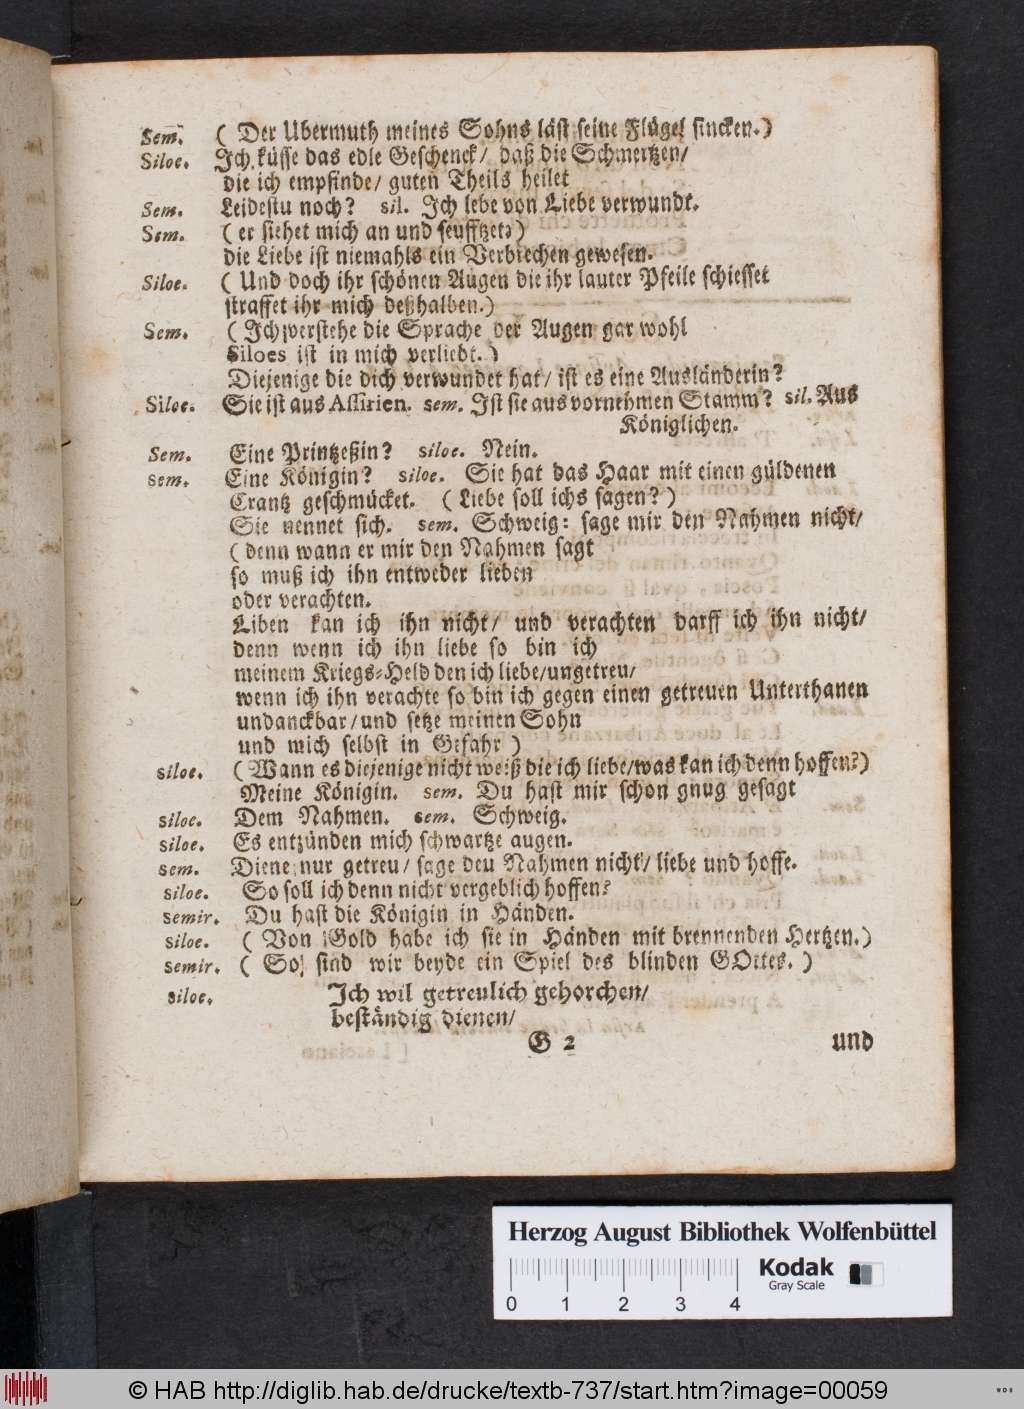 Sem. ( Der Ubermuth meines Sohns läst seine Flügel sincken.)
Siloe. Ich küsse das edle Geschenck/ daß die Schmertzen/
die ich empfinde/ guten Theils heilet
Sem. Leidestu noch? sil. Ich lebe von Liebe verwundt.
Sem. ( er siehet mich an und seufftzet?)
die Liebe ist niemahls ein Verbrechen gewesen.
Siloe. ( Und doch ihr schönen Augen die ihr lauter Pfeile schiesset
straffet ihr mich deßhalben.)
Sem. ( Ich verstehe die Sprache der Augen gar wohl
Siloes ist in mich verliebt. )
Diejenige die dich verwundet hat/ ist es eine Ausländerin?
Siloe. Sie ist aus Assirien. sem. Ist sie aus vornehmen Stamm? sil. Aus
Königlichen.
Sem. Eine Printzeßin? siloe. Nein.
sem. Eine Königin? siloe. Sie hat das Haar mit einen güldenen
Crantz geschmücket. ( Liebe soll ichs sagen? )
Sie nennet sich. sem. Schweig: sage mir den Nahmen nicht/
( denn wann er mir den Nahmen sagt
so muß ich ihn entweder lieben
oder verachten.
Liben kan ich ihn nicht/ und verachten darff ich ihn nicht/
denn wenn ich ihn liebe so bin ich
meinem Kriegs-Held den ich liebe/ungetreu/
wenn ich ihn verachte so bin ich gegen einen getreuen Unterthanen
undanckbar/und setze meinen Sohn
und mich selbst in Gefahr )
siloe. ( Wann es diejenige nicht weiß die ich liebe/was kan ich denn hoffen?)
Meine Königin. sem. Du hast mir schon gnug gesagt
siloe. Dem Nahmen. sem. Schweig.
siloe. Es entzünden mich schwartze augen.
sem. Diene nur getreu/ sage den Nahmen nicht/ liebe und hoffe.
siloe. So soll ich denn nicht vergeblich hoffen?
semir. Du hast die Königin in Händen.
siloe. ( Von Gold habe ich sie in Händen mit brennenden Hertzen.)
semir. ( So sind wir beyde ein Spiel des blinden GOttes. )
siloe. Ich wil getreulich gehorchen/
beständig dienen/
G 2 und
Herzog August Bibliothek Wolfenbüttel
0 1 2 3 4
Kodak
Gray Scale
© HAB http://diglib.hab.de/drucke/textb-737/start.htm?image=00059